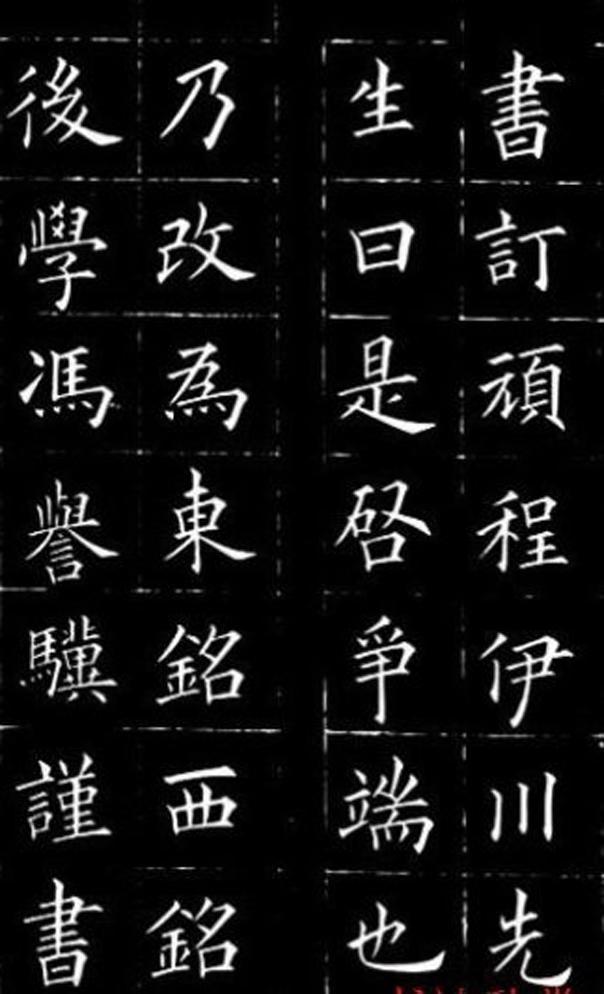 書訂頑程伊川先
生曰是啓爭端也
乃改為東銘西銘
後學馮譽驥謹書